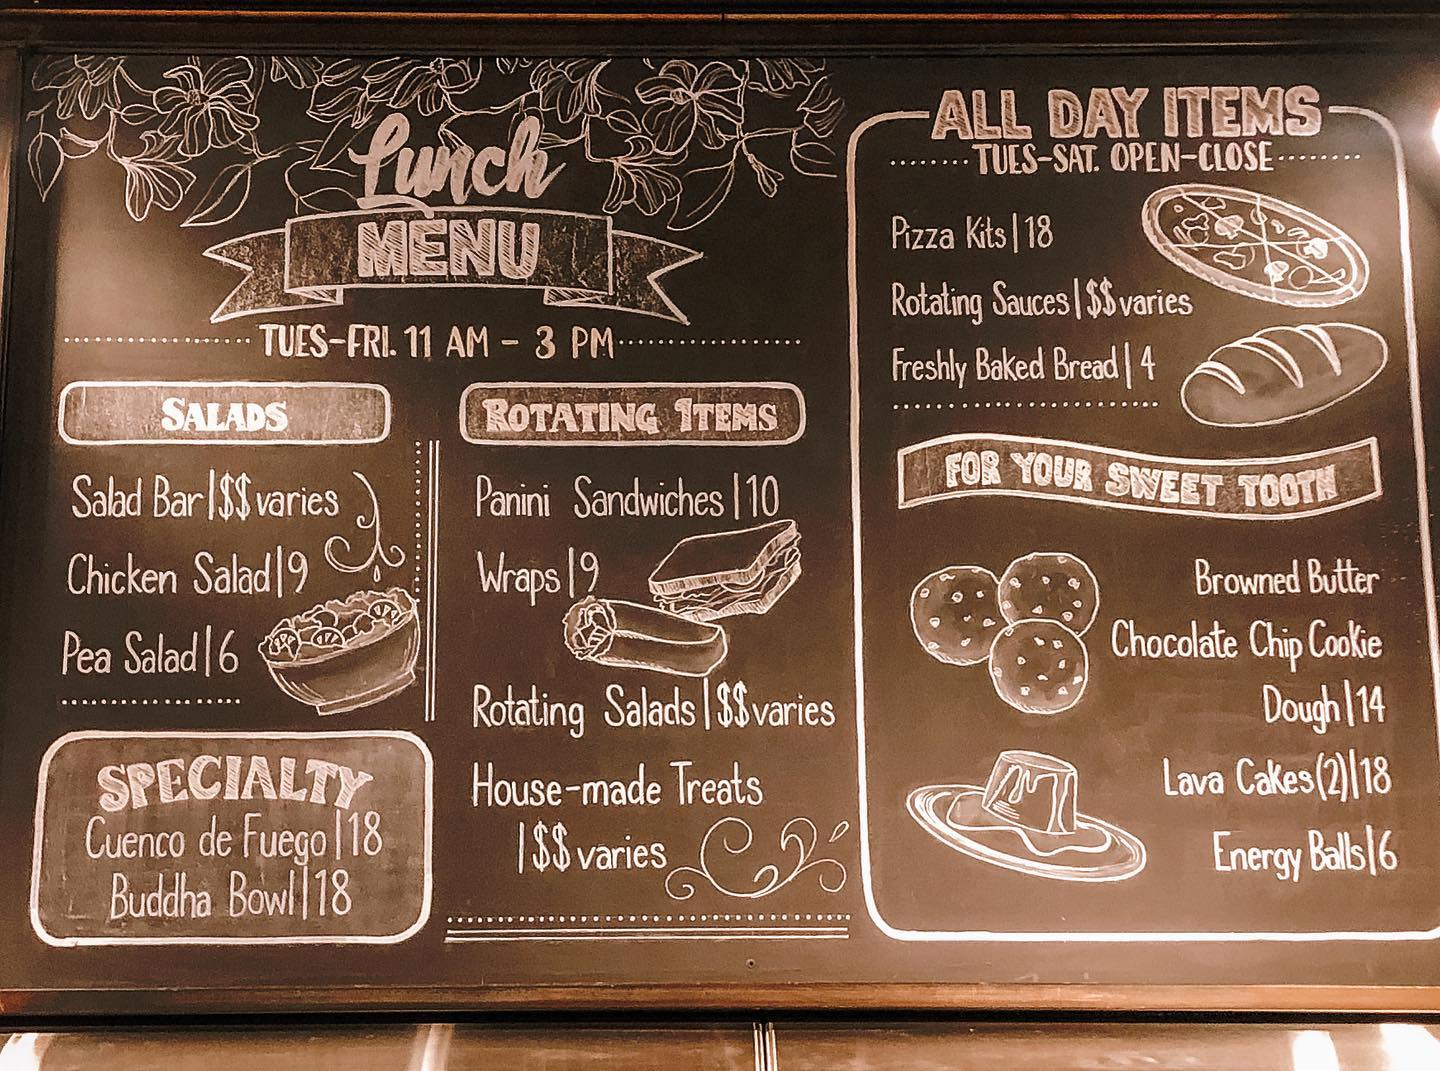 Lunch
MENU
TUES-FRI. 11 AM - 3 PM
SALADS
Salad Bar|$$varies
Chicken Salad|9
Pea Salad|6
SPECIALTY
Cuenco de Fuego|18
Buddha Bowl|18
ROTATING ITEMS
Panini Sandwiches|10
Wraps|9
Rotating Salads|$$varies
House-made Treats
|$$varies
ALL DAY ITEMS
TUES-SAT. OPEN-CLOSE
Pizza Kits|18
Rotating Sauces|$$varies
Freshly Baked Bread|4
FOR YOUR SWEET TOOTH
Browned Butter
Chocolate Chip Cookie
Dough|14
Lava Cakes(2)|18
Energy Balls|6